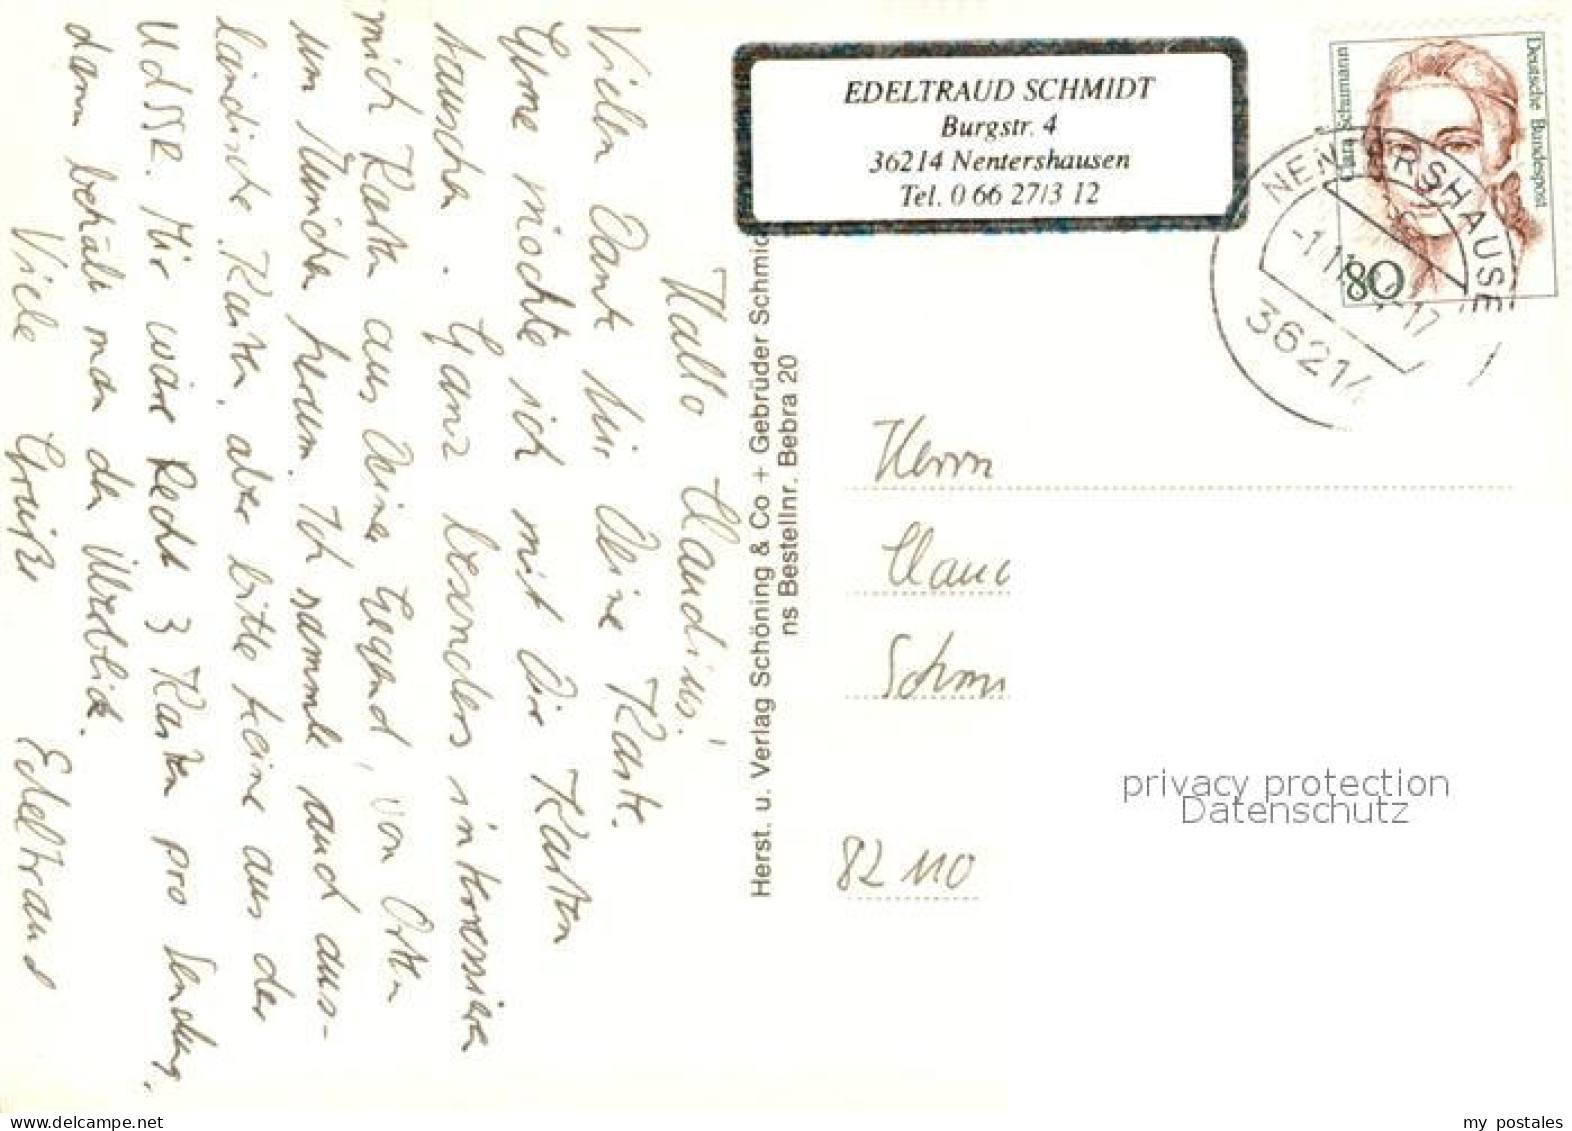 EDELTRAUD SCHMIDT
Burgstr. 4
36214 Nentershausen
Tel. 0 66 27/3 12
Clara Schumann
Deutsche Bundespost
80
NENTERSHAUSE
36214
Hallo Claudius!
Vielen Dank für Deine Karte.
Gerne möchte ich mit Dir Karten
tauschen. Ganz besonders interessieren
mich Karten aus Deiner Gegend, von Orten
um München herum. Ich sammle auch aus-
ländische Karten, aber bitte keine aus der
UdSSR. Mir wäre Recht 3 Karten pro Sendung,
dann behält man den Überblick.
Viele Grüße Edeltraud
Herst. u. Verlag Schöning & Co + Gebrüder Schmid
ns Bestellnr. Bebra 20
Herrn
Clau
Schm
82 110
privacy protection
Datenschutz
my postales